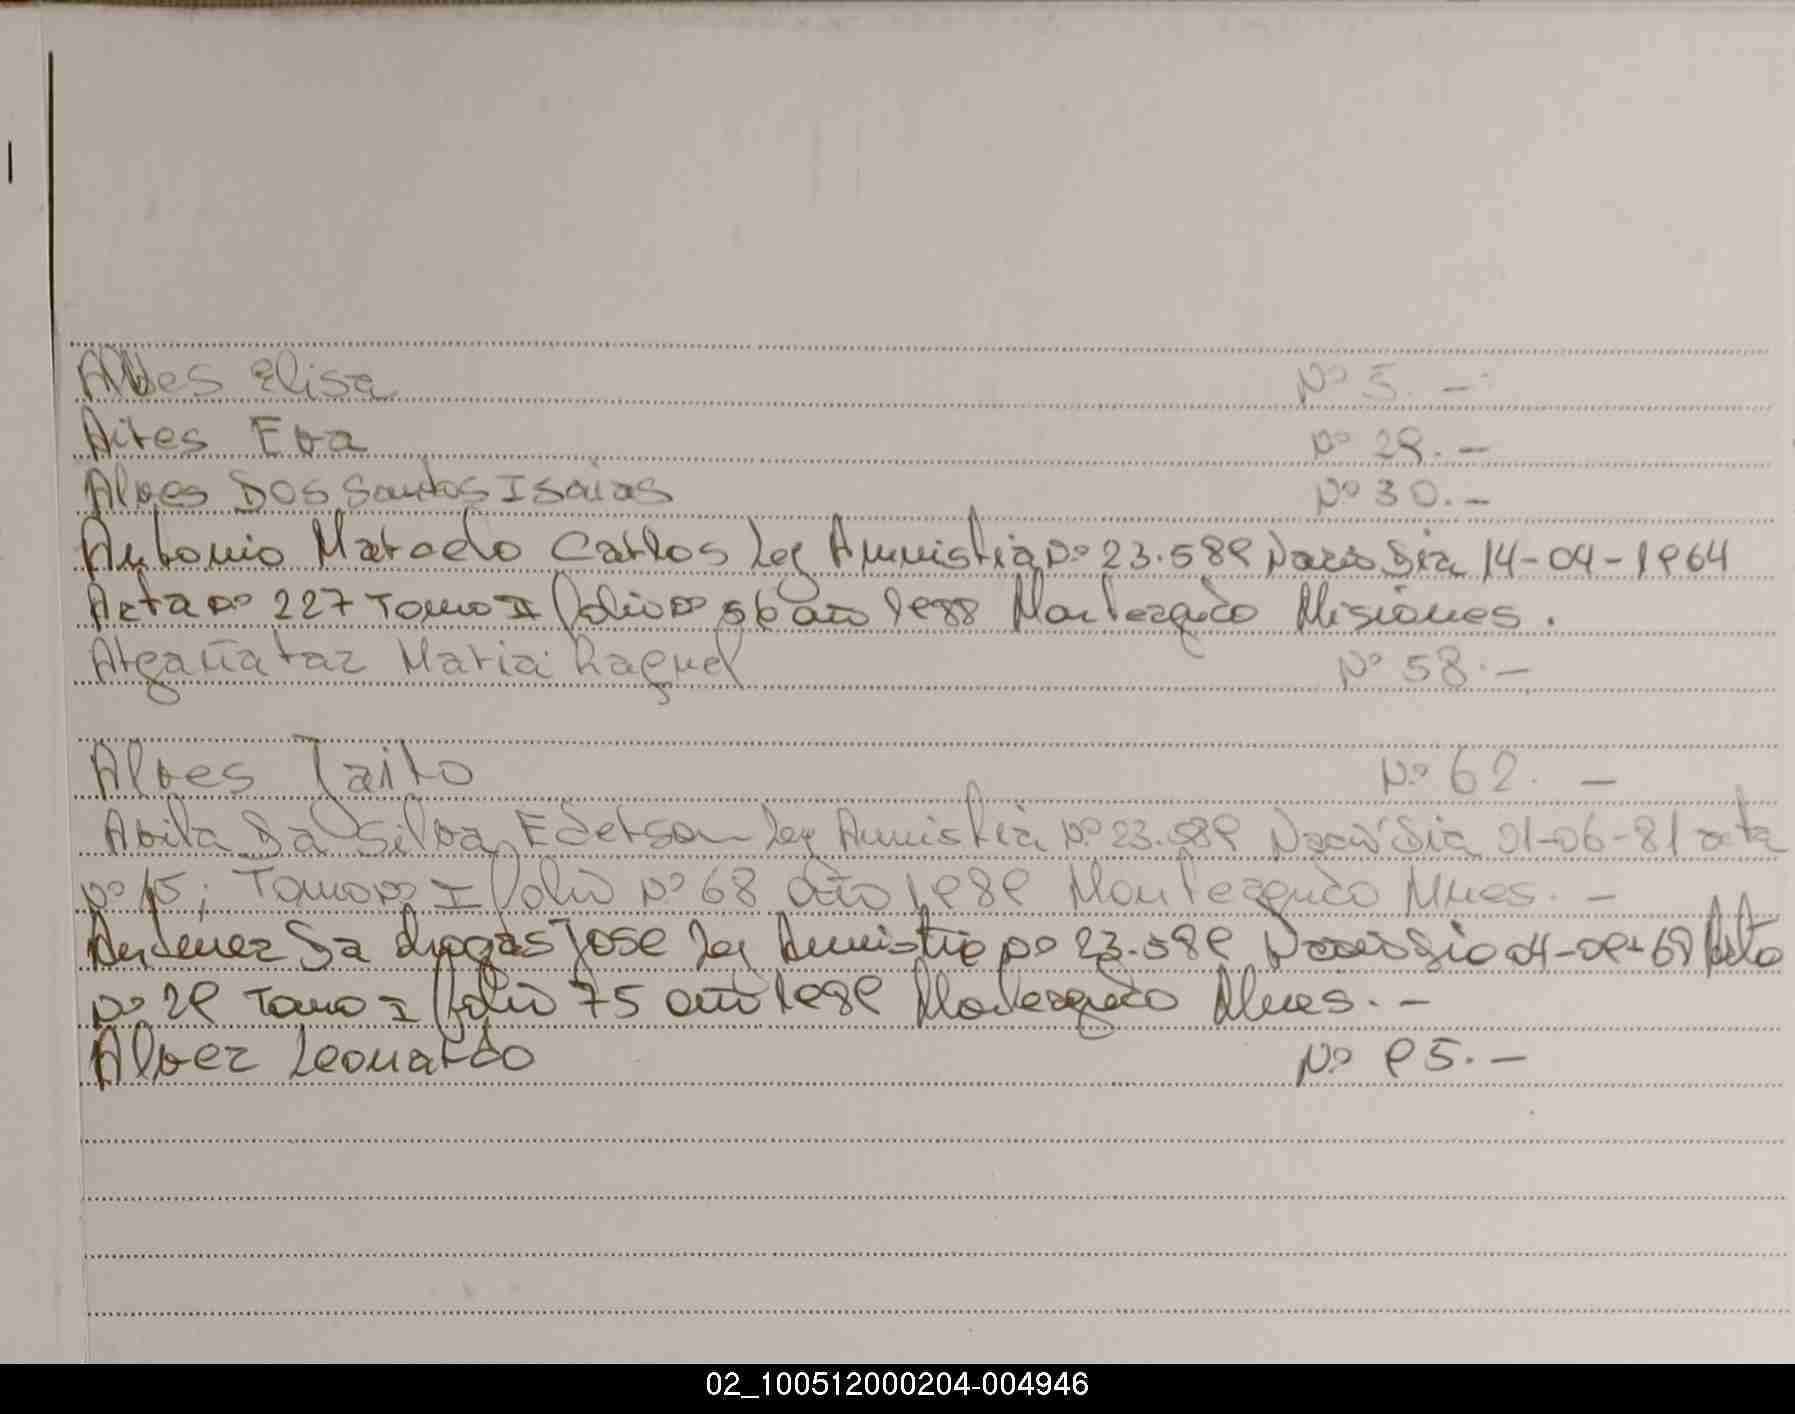 Alves Elisa Nº 5.-
Aires Eva Nº 29.-
Alves Dos Santos Isaias Nº 30.-
Antonio Marcelo Carlos ley Amnistia Nº 23.589 Nacio Dia 14-04-1964
Acta Nº 227 Tomo II folio Nº 56 año 1988 Montecarlo Misiones.
Argañaraz Maria Raquel Nº 58.-
Alves Jairo Nº 62. -
Avila Da Silva Ederson ley Amnistia Nº 23.589 Nació Dia 21-06-81 acta
Nº 15; Tomo Nº I folio Nº 68 año 1989 Montecarlo Mnes. -
Da Jose ley Amnistia Nº 23.589 Nacio Dia 04-09-68 Acta
Nº 29 Tomo I folio 75 año 1989 Montecarlo Mnes. -
Alvez Leonardo Nº 95.-
02_100512000204-004946